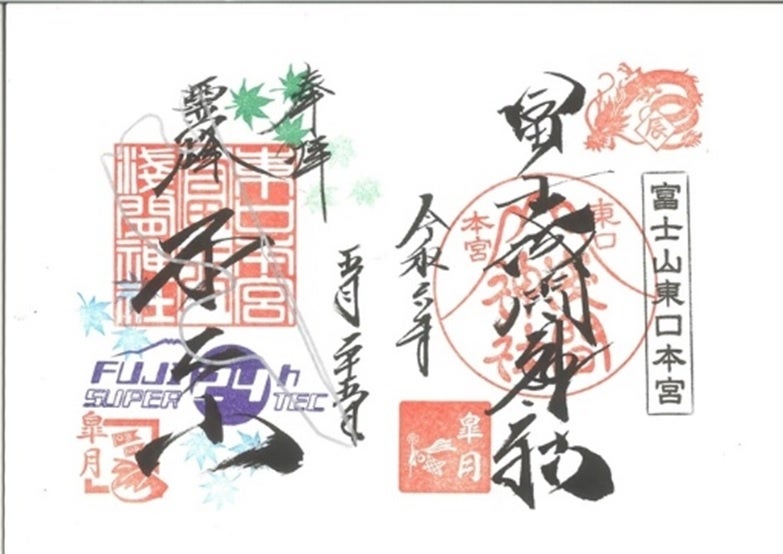 辰
富士山東口本宮
冨士浅間神社
東口
本宮
皐月
令和六年
五月二十五日
奉拝
霊峰
不二山
東口本宮
淺間神社
FUJI 24h
SUPER TEC
皐月